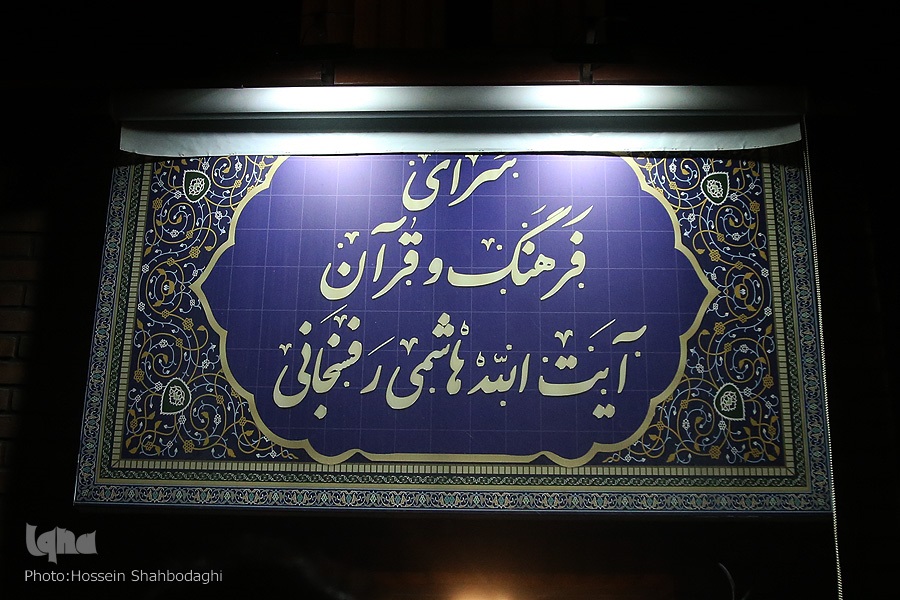 سرای
فرهنگ و قرآن
آیت الله هاشمی رفسنجانی
Iqna
Photo:Hossein Shahbodaghi